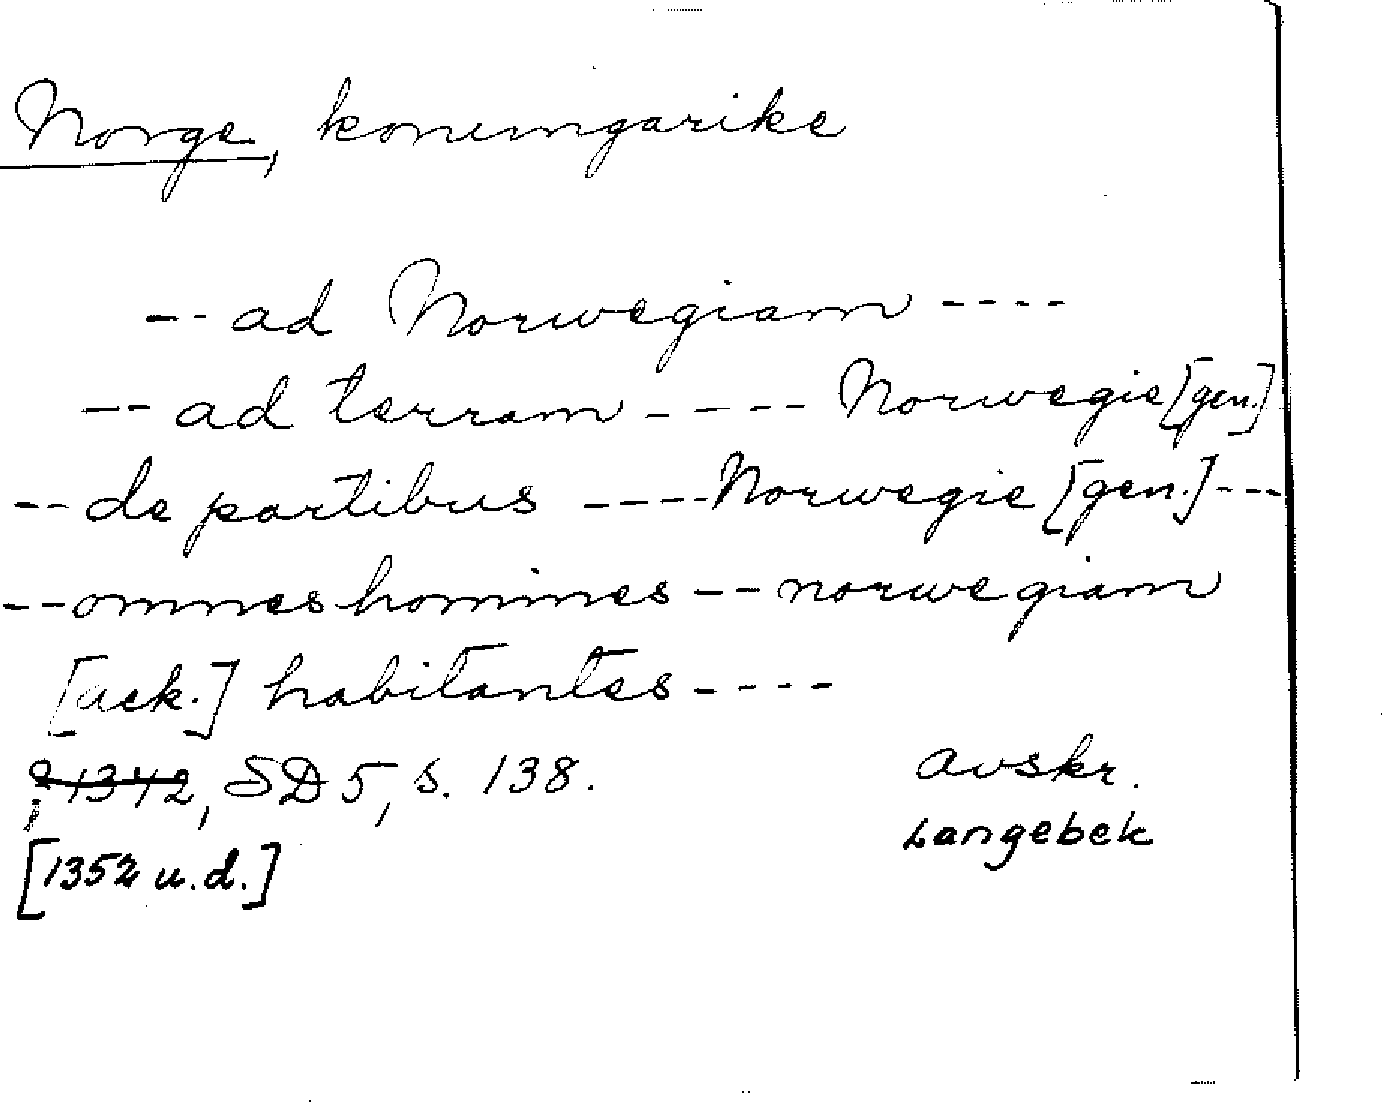 Norge, konungarike
-- ad Norwegiam ----
-- ad terram ----- Norwegie [gen.]
-- de partibus ---- Norwegie [gen.] ---
-- omnes homines -- norwegiam
[ack.] habitantes ----
1342, SD 5, s. 138. avskr.
[1352 u.d.] Langebek